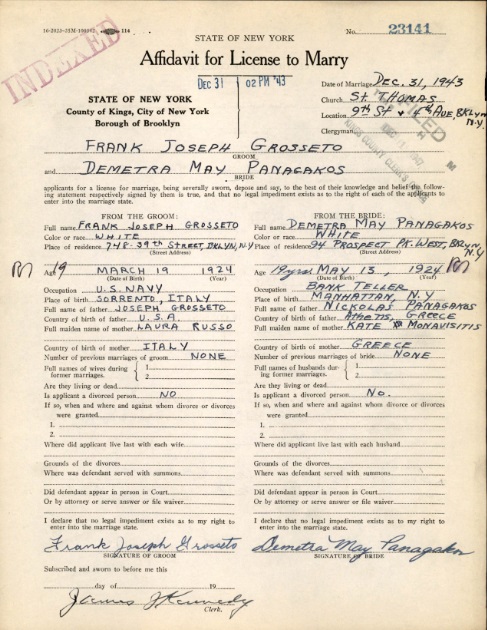 114
INDEXED
STATE OF NEW YORK
No. 23141
Affidavit for License to Marry
DEC 31 02 PM '43
Date of Marriage DEC. 31, 1943
Church ST. THOMAS
Location 9TH ST + 4TH AVE, BKLYN N.Y.
Clergyman
FILED
STATE OF NEW YORK
County of Kings, City of New York
Borough of Brooklyn
FRANK JOSEPH GROSSETO
GROOM
and DEMETRA MAY PANAGAKOS
BRIDE
applicants for a license for marriage, being severally sworn, depose and say, to the best of their knowledge and belief the follow-
ing statement respectively signed by them is true, and that no legal impediment exists as to the right of each of the applicants to
enter into the marriage state.
FROM THE GROOM:
Full name FRANK JOSEPH GROSSETO
Color or race WHITE
Place of residence 748-39TH STREET, BKLYN, N.Y
(Street Address)
Age 19 MARCH 19 1924
(Date of Birth) (Year)
Occupation U.S. NAVY
Place of birth SORRENTO, ITALY
Full name of father JOSEPH GROSSETO
Country of birth of father U.S.A.
Full maiden name of mother LAURA RUSSO
Country of birth of mother ITALY
Number of previous marriages of groom NONE
Full names of wives during
former marriages.
1
2
Are they living or dead
Is applicant a divorced person NO
If so, when and where and against whom divorce or divorces
were granted
1.
2.
Where did applicant live last with each wife
Grounds of the divorces
Where was defendant served with summons
Did defendant appear in person in Court
Or by attorney or serve answer or file waiver
I declare that no legal impediment exists as to my right to
enter into the marriage state.
Frank Joseph Grosseto
SIGNATURE OF GROOM
FROM THE BRIDE:
Full name DEMETRA MAY PANAGAKOS
Color or race WHITE
Place of residence 94 PROSPECT PK. WEST, BKLYN, N.Y
(Street Address)
Age 19 yrs MAY 13, 1924
(Date of Birth) (Year)
Occupation BANK TELLER
Place of birth MANHATTAN, N.Y
Full name of father NICKOLAS PANAGAKOS
Country of birth of father ATHENS, GREECE
Full maiden name of mother KATE MONAVISITIS
Country of birth of mother GREECE
Number of previous marriages of bride NONE
Full names of husbands dur-
ing former marriages.
1
2
Are they living or dead
Is applicant a divorced person NO.
If so, when and where and against whom divorce or divorces
were granted
1.
2.
Where did applicant live last with each husband
Grounds of the divorces
Where was defendant served with summons
Did defendant appear in person in Court
Or by attorney or serve answer or file waiver
I declare that no legal impediment exists as to my right to
enter into the marriage state.
Demetra May Panagakos
SIGNATURE OF BRIDE
Subscribed and sworn to before me this
day of 19
James J Kennedy
Clerk.